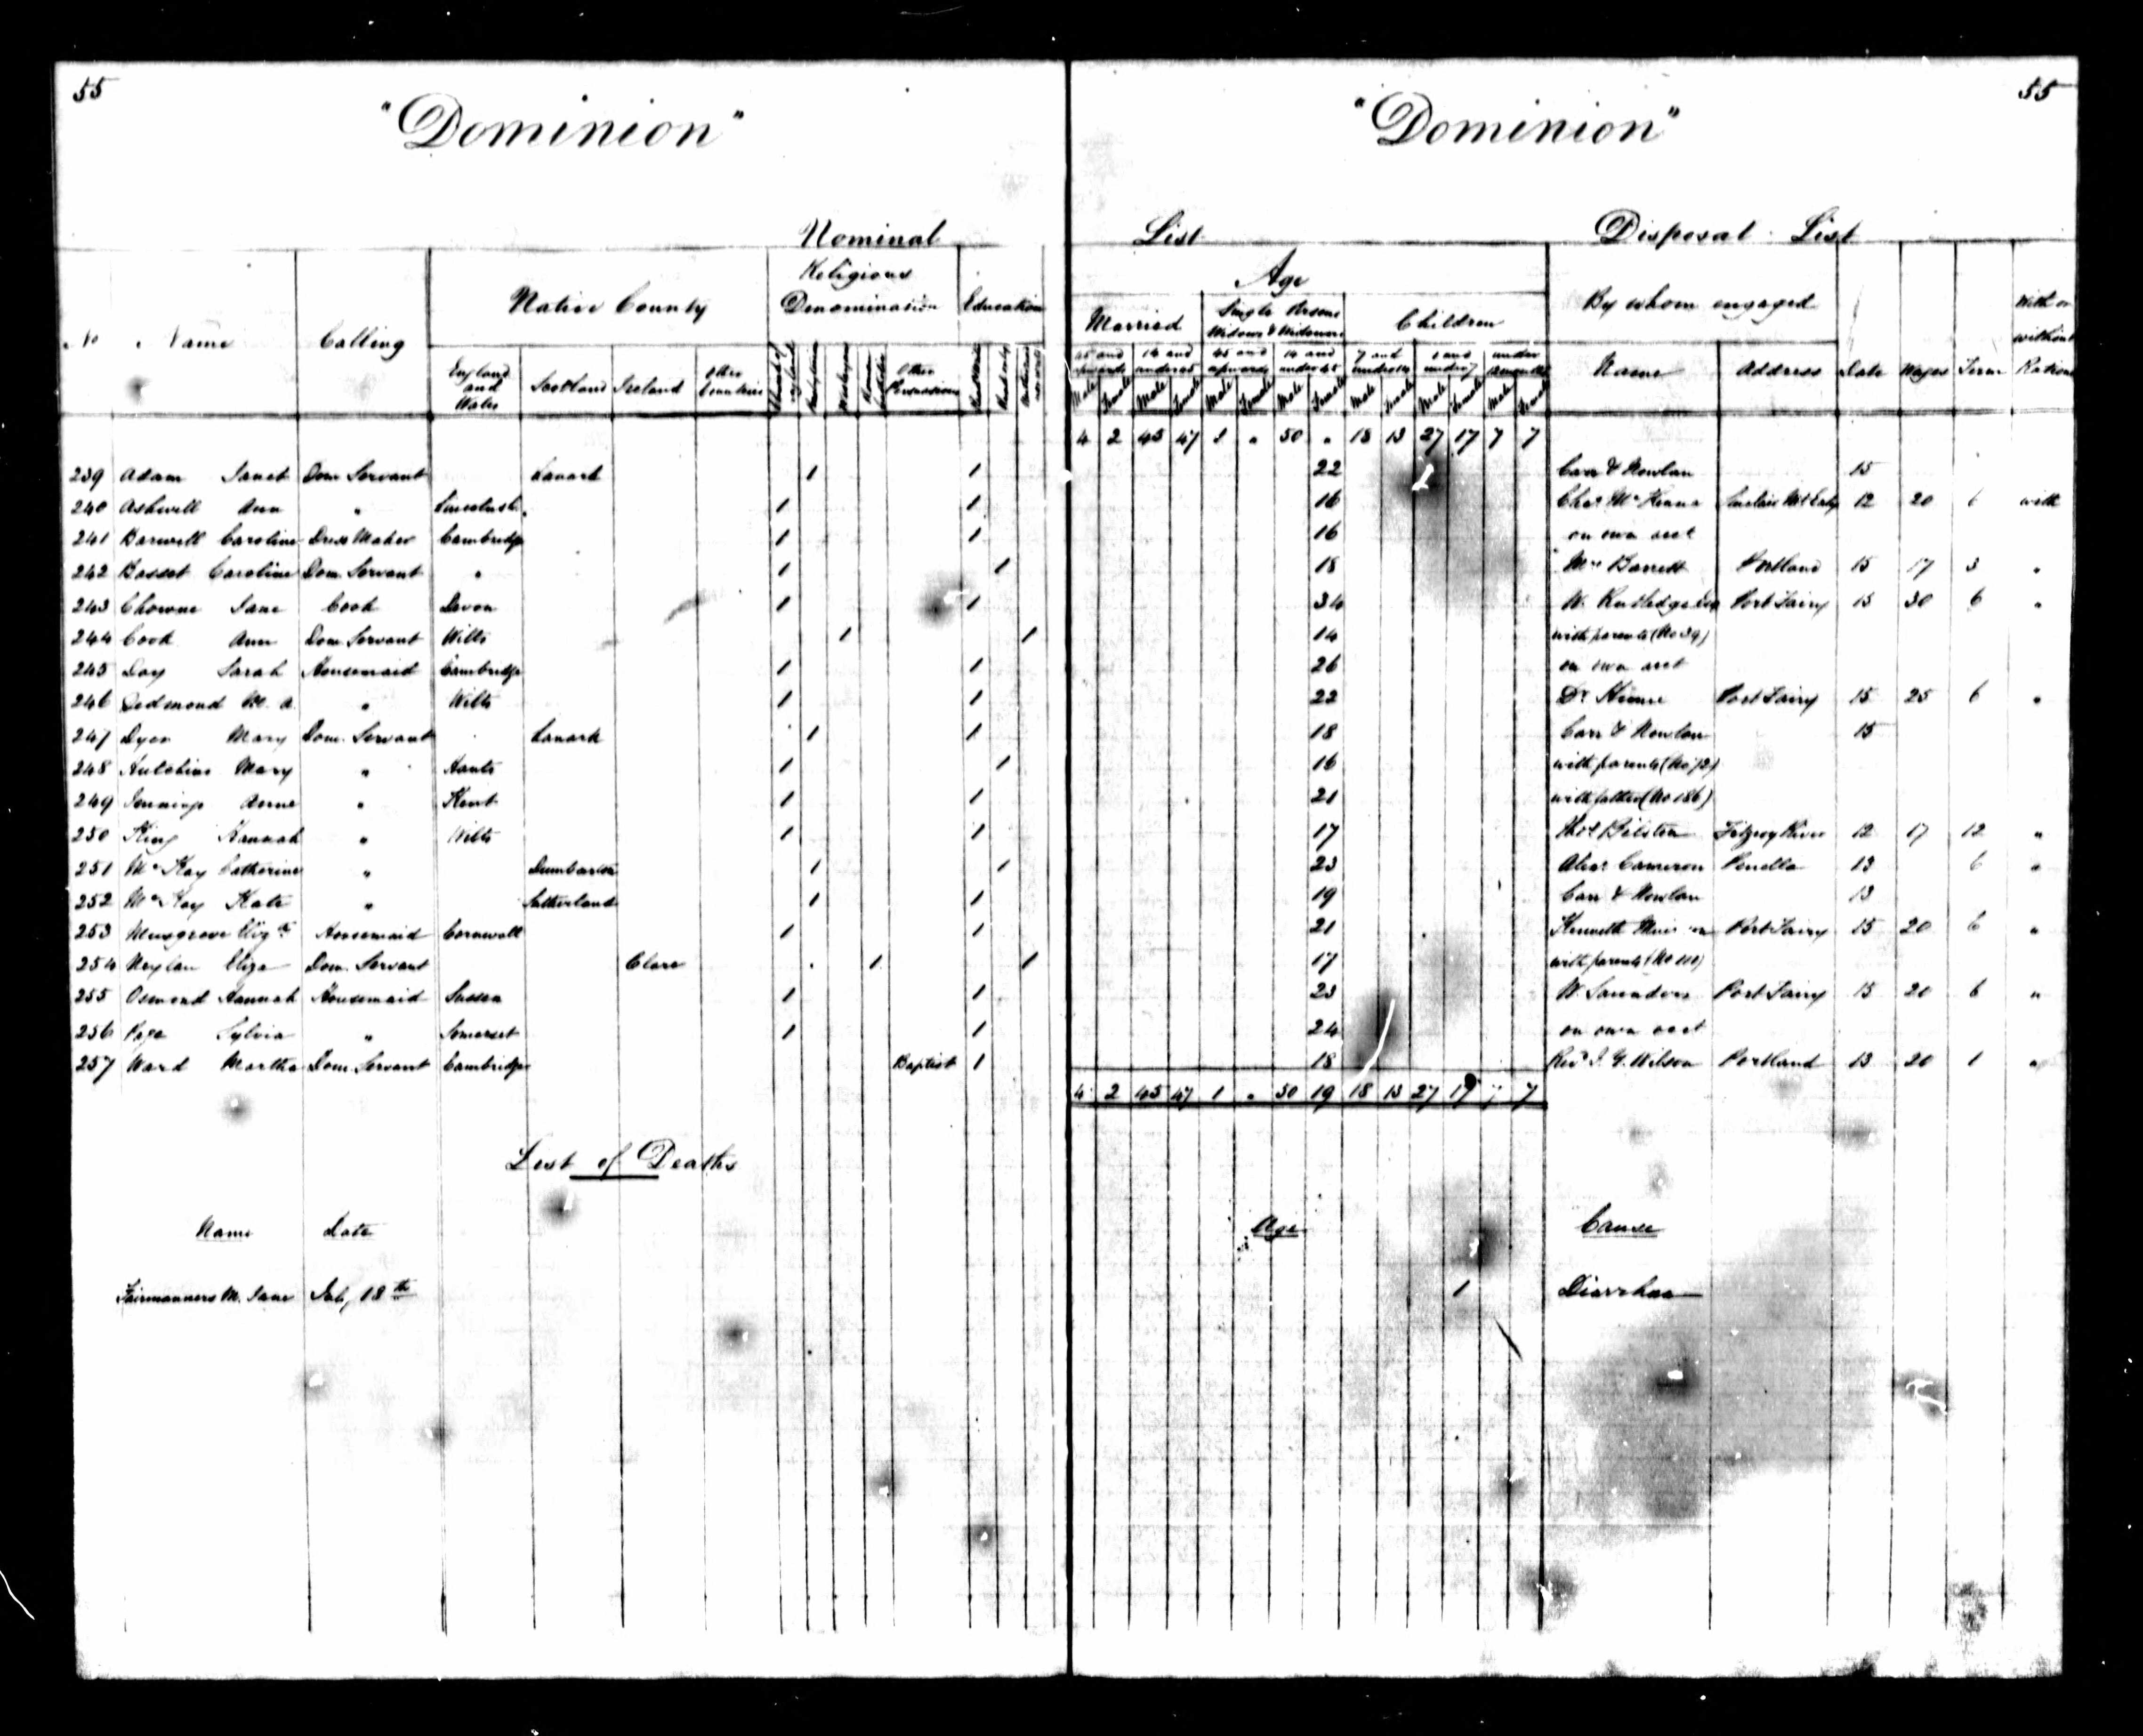 55 55
"Dominion" "Dominion"
Nominal List Disposal List
No Name Calling Native County Religious Denomination Education Age By whom engaged Date Wages Term With or without Rations
Married Single Persons Widows & Widowers Children
England and Wales Scotland Ireland Other Countries Church of England Wesleyan Other Persuasions 45 and upwards 14 and under 45 45 and upwards 14 and under 45 7 and under 14 1 and under 7 under Name Address
Male Female Male Female Male Female Male Female Male Female Male Female Male Female
4 2 45 47 1 " 50 " 18 13 27 17 7 7
239 Adam Janet Dom Servant Lanark 1 1 22 Carr & Nowlan 15
240 Ashwell Ann " 1 1 16 Chas McKenna 12 20 6 with
241 Barwell Caroline Dress Maker Cambridge 1 1 16 on own acct
242 Basset Caroline Dom Servant " 1 1 18 Mrs Barrett Portland 15 17 3 "
243 Chowne Jane Cook Devon 1 1 34 W. Rutledge Port Fairy 15 30 6 "
244 Cook Ann Dom Servant Wilts 1 1 14 with parents (No 39)
245 Day Sarah Housemaid Cambridge 1 1 26 on own acct
246 Dedmond M. A. " Wilts 1 1 22 Dr. Port Fairy 15 25 6 "
247 Dyer Mary Dom. Servant Lanark 1 1 18 Carr & Nowlan 15
248 Hutchins Mary " Hants 1 1 16 with parents (No 72)
249 Jennings Anne " Kent 1 1 21 with father (No 186)
250 King Hannah " Wilts 1 1 17 Thos Bilston Fitzroy River 12 17 12 "
251 McKay Catherine " Dumbarton 1 1 23 Alexr Cameron Penella 13 6 "
252 McKay Kate " Sutherland 1 1 19 Carr & Nowlan 13
253 Musgrove Elizth Housemaid Cornwall 1 1 21 Kenneth Port Fairy 15 20 6 "
254 Neylan Eliza Dom. Servant Clare 1 1 17 with parents (No 110)
255 Osmond Hannah Housemaid Sussex 1 1 23 W. Saunders Port Fairy 15 20 6 "
256 Page Sylvia " Somerset 1 1 24 on own acct
257 Ward Martha Dom Servant Cambridge Baptist 1 18 Revd J. Y. Wilson Portland 13 20 1 "
4 2 45 47 1 " 50 19 18 13 27 17 7 7
List of Deaths
Name Date Age Cause
Fairmanners M. Jane July 18th 1 Diarrhœa